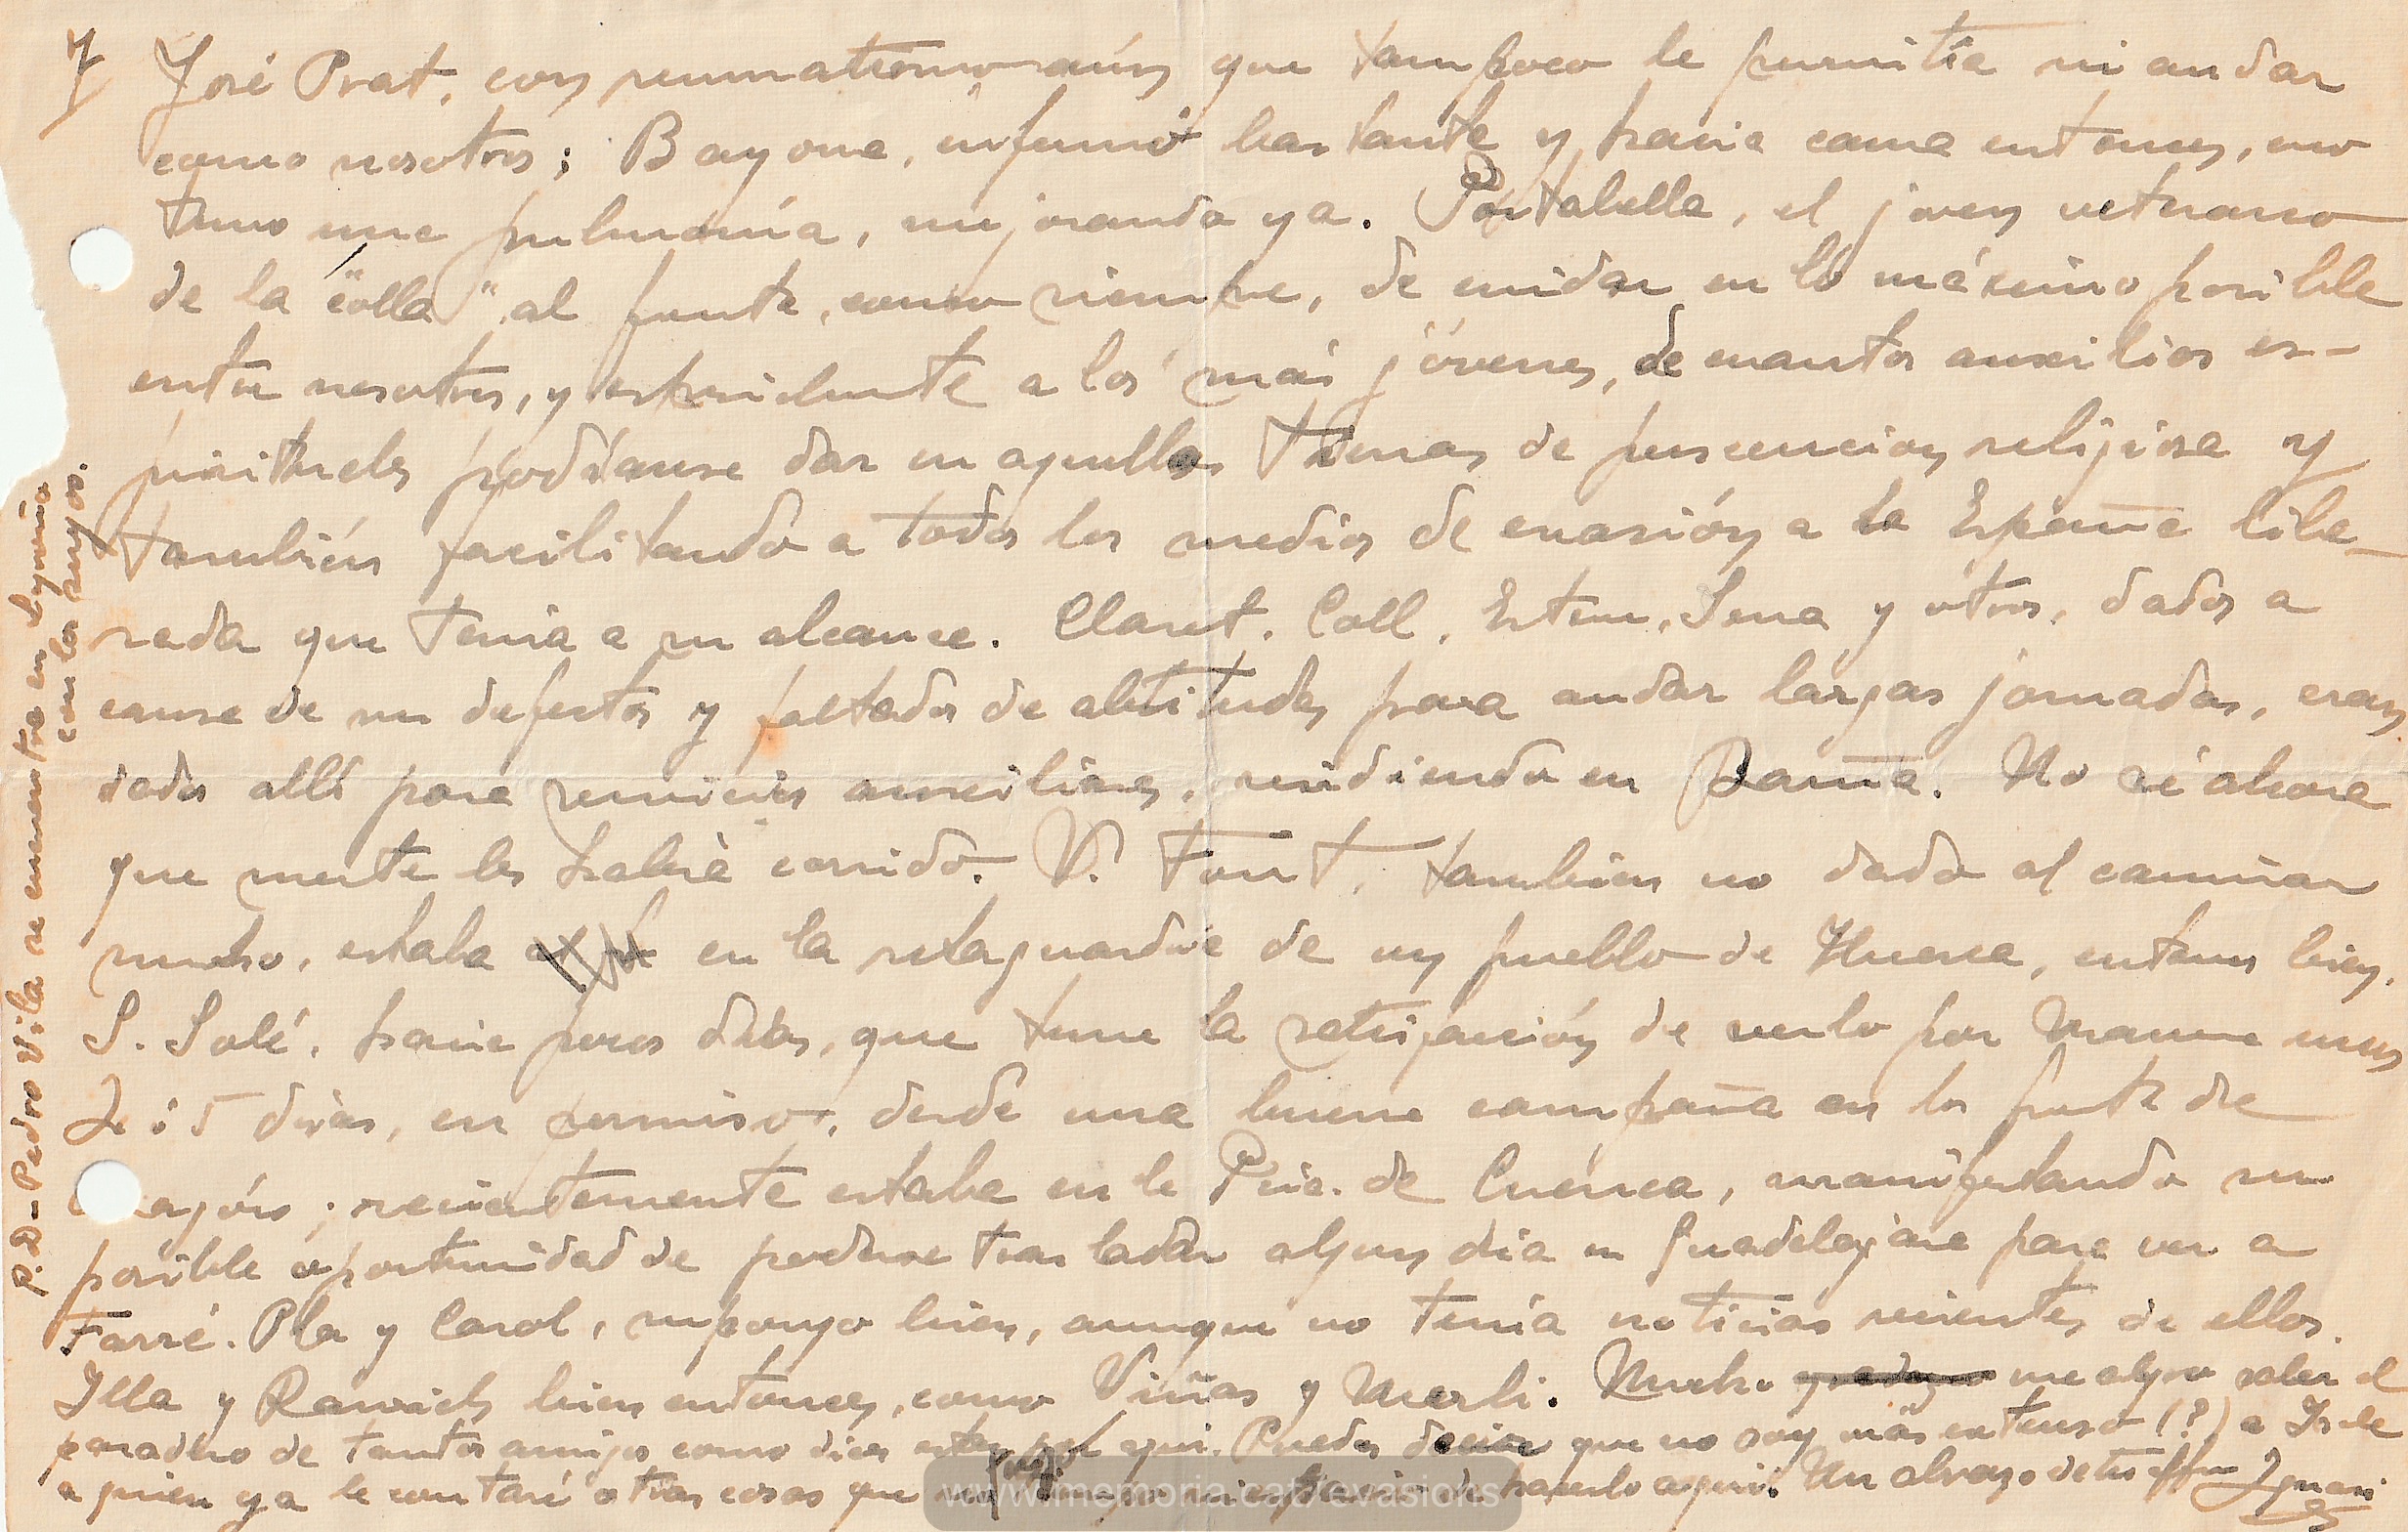 7 José Prat, con reumatismo aún que tampoco le permitía ni andar
como nosotros; Bayona, enfermó bastante y hacia cama entonces, uno
tuvo una pulmonía, mejorando ya. Portabella, el joven veterano
de la "colla" al frente, como siempre, de cuidar en lo máximo posible
entre nosotros, y especialmente a los más jóvenes, de cuantos auxilios es-
pirituales podíanse dar en aquellas tierras de persecución religiosa y
también facilitando a todos los medios de evasión a la España libe-
rada que tenia a su alcance. Claret, Coll, Serra y otros, dados a
causa de sus defectos y faltados de abtitudes para andar largas jornadas, eran
dados allí para servicios auxiliares, residiendo en . No sé ahora
que suerte les habrá corrido. V. Font, también no dado al caminar
mucho, estaba en la retaguardia de un pueblo de Huesca, entonces bien.
S. Solé, hacia pocos dias, que tuve la satisfacción de verlo por unos
5 dias, en permiso, desde una buena campaña en los frente de
agón; recientemente estaba en la Prie. de Cuenca, manifestando su
posible oportunidad de poderse trasladar algun dia en Guadalajara para ver a
Farré. Pla y Carol, supongo bien, aunque no tenía noticias recientes de ellos.
Illa y bien entonces, como Viñas y Merli. Mucho me alegro saber el
paradero de tantos amigos como dices aqui. Puedes decir que no soy más extenso (?) a
a quien ya le contaré otras cosas que de hacerlo aqui. Un abrazo de tu Ignasi
P.D- Pedro Vila se encuentra en
con los suyos.
www.memoria.cat/evasions